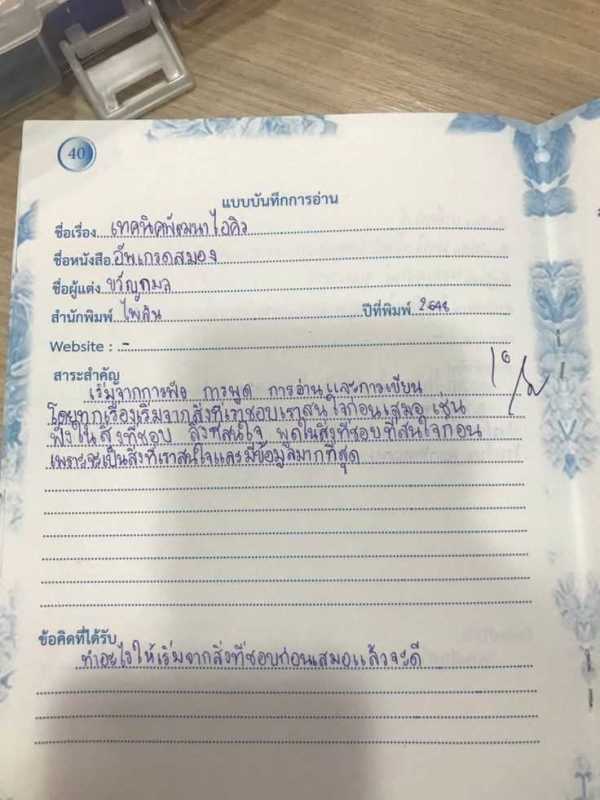 40
แบบบันทึกการอ่าน
ชื่อเรื่อง เทคนิคพัฒนาไอคิว
ชื่อหนังสือ อัพเกรดสมอง
ชื่อผู้แต่ง ขวัญกมล
สำนักพิมพ์ ไพลิน ปีที่พิมพ์
Website : -
สาระสำคัญ
เริ่มจากการฟัง การพูด การอ่านและการเขียน
โดยทุกเรื่องเริ่มจากสิ่งที่เราชอบเราสนใจก่อนเสมอ เช่น
ฟังในสิ่งที่ชอบ สิ่งที่สนใจ พูดในสิ่งที่ชอบที่สนใจก่อน
เพราะจะเป็นสิ่งที่เราสนใจและมีข้อมูลมากที่สุด
ข้อคิดที่ได้รับ
ทำอะไรให้เริ่มจากสิ่งที่ชอบก่อนเสมอแล้วจะดี